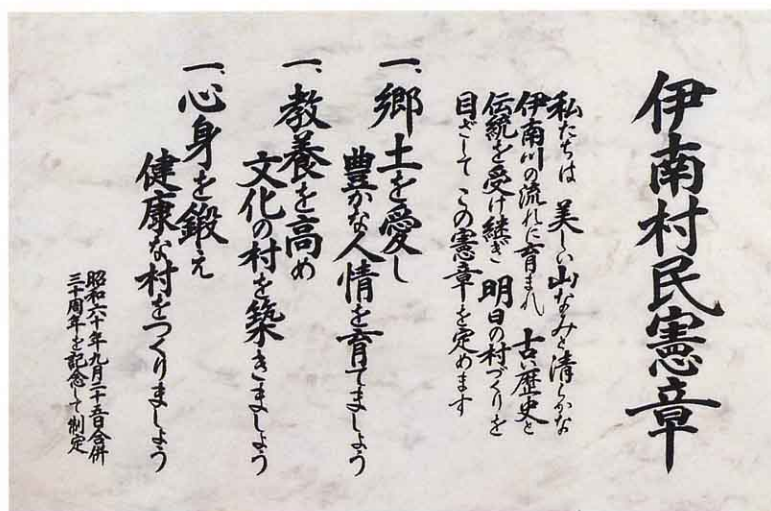 伊南村民憲章
私たちは 美しい山なみと清らかな
伊南川の流れに育まれ 古い歴史と
伝統を受け継ぎ 明日の村づくりを
目ざして この憲章を定めます
一、郷土を愛し
豊かな人情を育てましょう
一、教養を高め
文化の村を築きましょう
一、心身を鍛え
健康な村をつくりましょう
昭和六十年九月二十五日合併
三十周年を記念して制定